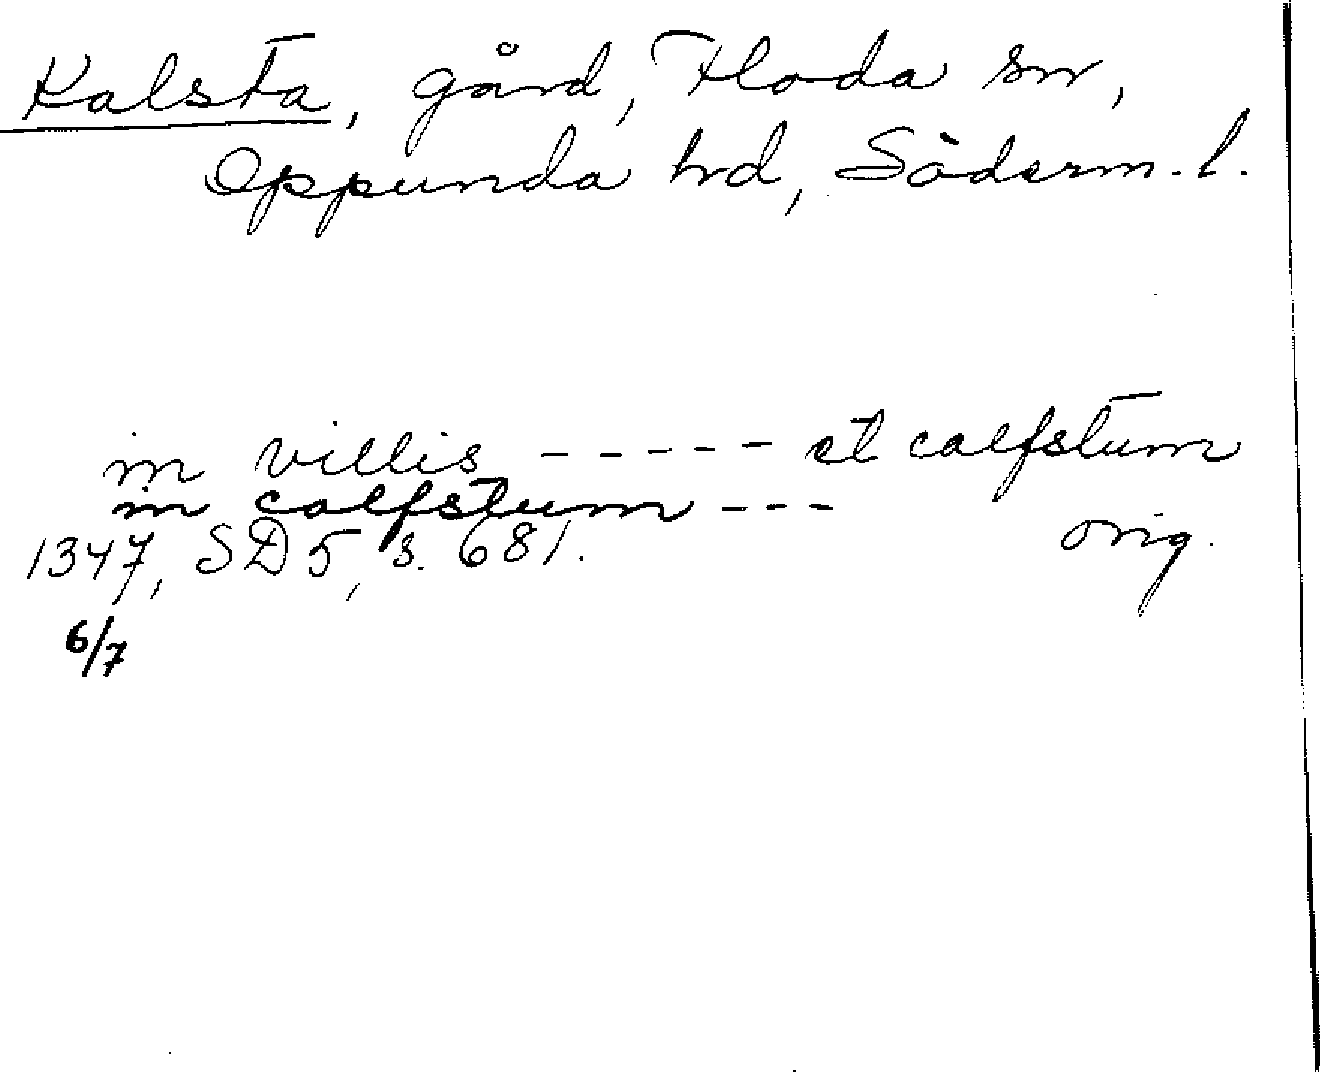 Kalsta, gård, Floda sn,
Oppunda hd, Söderm. l.
in villis ----- et calfstum
in calfstum ---
1347, SD 5, s. 681. orig.
6/7